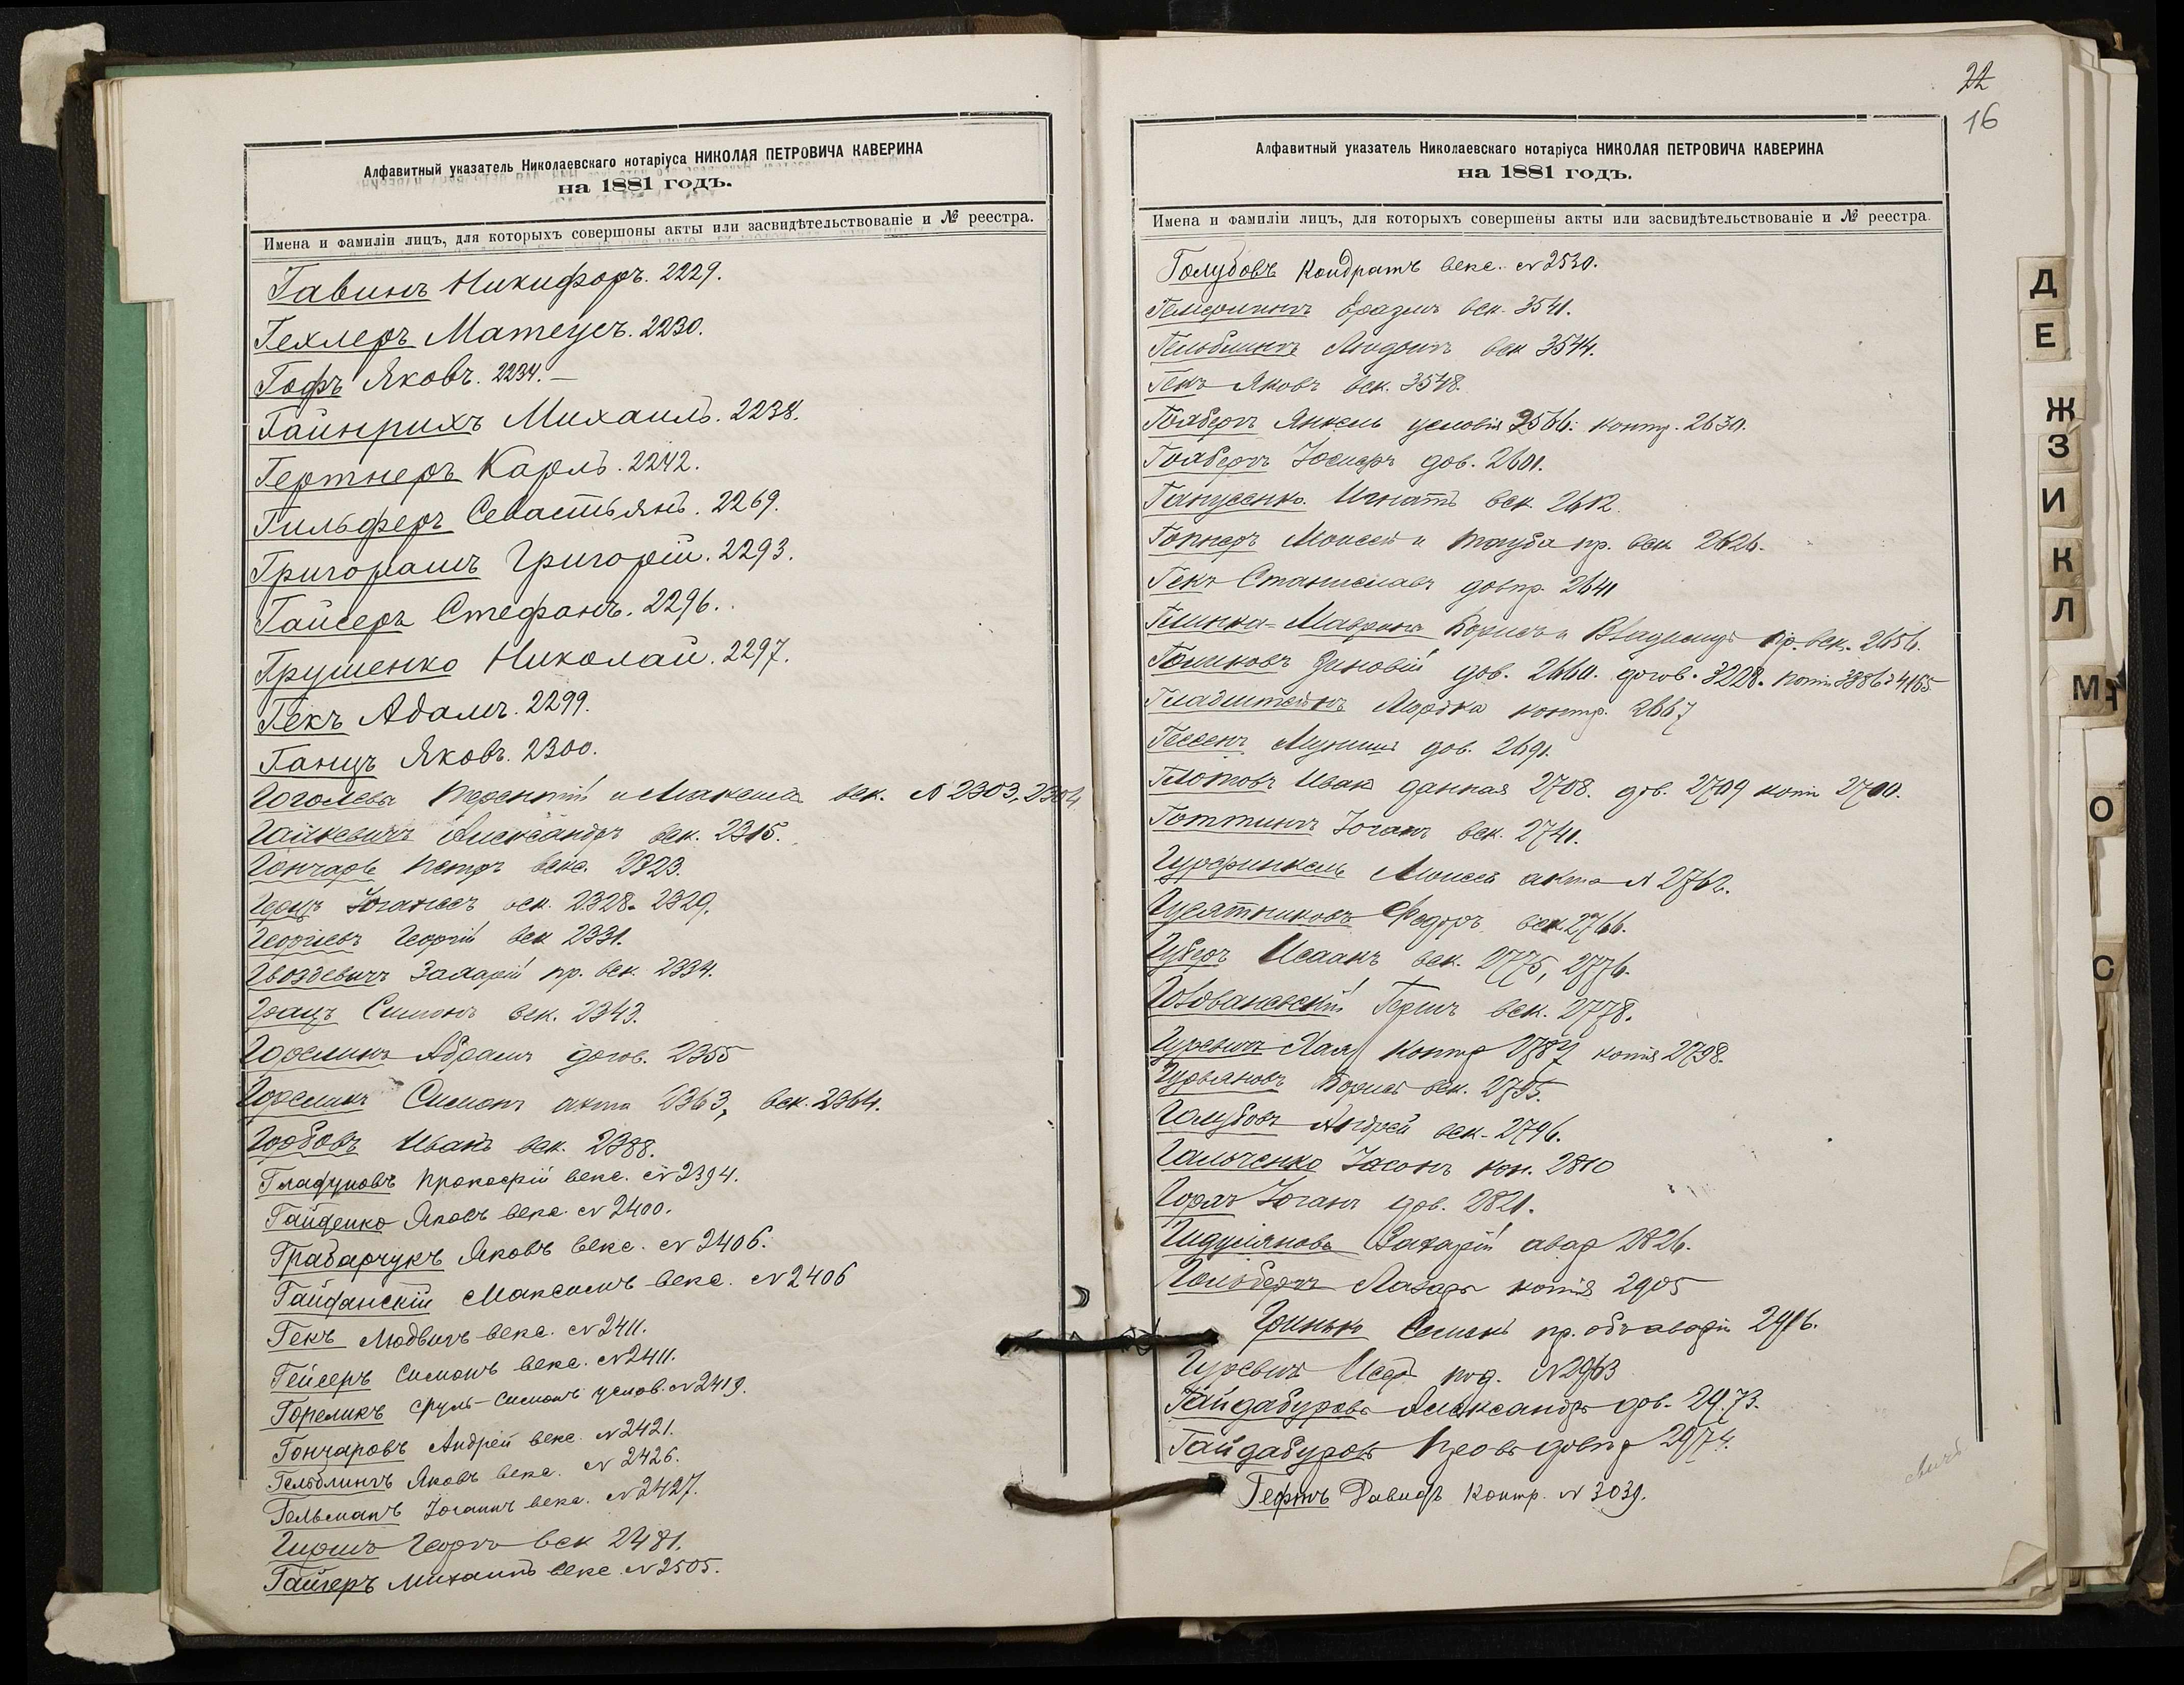 Алфавитный указатель Николаевскаго нотаріуса НИКОЛАЯ ПЕТРОВИЧА КАВЕРИНА
на 1881 годъ.
Имена и фамиліи лицъ, для которыхъ совершоны акты или засвидѣтельствованіе и № реестра.
Гавинъ Никифоръ. 2229.
Гехлеръ Матеусъ. 2230.
Гофъ Яковъ. 2234. —
Гайнрихъ Михаилъ. 2238.
Гертнеръ Карлъ. 2242.
Гильферъ Севастьянъ. 2269.
Григорашъ Григорій. 2293.
Гайсеръ Стефанъ. 2296.
Грушенко Николай. 2297.
Гекъ Адамъ. 2299.
Ганцъ Яковъ. 2300.
Гоголевы Терентій и век. N 2303, 2304
Гацкевичъ Александръ век. 2315.
Гончаръ Петръ векс. 2323.
Іоганесъ век. 2328. 2329.
Георгіевъ Георгій век 2331.
Гвоздевичъ Захарій пр. век. 2334.
Грацъ Симонъ век. 2343.
Гореликъ Абрамъ догов. 2355
Гореликъ Симонъ акта 2363, век. 2364.
Горбовъ Иванъ век. 2388.
Гладуновъ Прокофій векс. N 2394.
Гайденко Яковъ векс. N 2400.
Грабарчукъ Яковъ векс. N 2406.
Гайданскій Максимъ векс. N 2406
Гекъ Людвигъ векс. N 2411.
Гейсеръ Симонъ векс. N 2411.
Гореликъ Сруль-Симонъ услов. N 2419.
Гончаровъ Андрей векс. N 2421.
Гельблингъ Яковъ векс. N 2426.
Гельманъ Іоганнъ векс. N 2427.
Гиршъ Георгъ век 2481.
Гайгеръ Михаилъ векс. N 2505.
22
16
Алфавитный указатель Николаевскаго нотаріуса НИКОЛАЯ ПЕТРОВИЧА КАВЕРИНА
на 1881 годъ.
Имена и фамиліи лицъ, для которыхъ совершены акты или засвидѣтельствованіе и № реестра.
Голубовъ Кондратъ векс. N 2530.
Еразмъ век. 3541.
век 3544.
Гекъ Яковъ век. 3548.
Голбергъ Янкель условія 2566. контр. 2630.
Голбергъ дов. 2601.
Ганусенко Игнатъ век. 2612.
Гопнеръ Моисей и Тауба пр. век 2626.
Гекъ Станиславъ довпр. 2641
Глинка-Мавринъ Борисъ и Владиміръ пр. век. 2656.
Голиковъ Зиновій дов. 2660. догов. 3228. копіи 3386 и 4165
Гладштейнъ Мордко контр. 2667
Гессенъ дов. 2691.
Глотовъ Иванъ данная 2708. дов. 2709 копіи 2710.
Готтингъ Іоганъ век. 2741.
Гурфинкель Моисей акта N 2762.
Гусятниковъ Федоръ век 2766.
Губеръ Исаакъ век. 2775, 2776.
Голованевскій Гершъ век. 2778.
Гуревичъ контр 2787 копія 2798.
Гурьяновъ Борисъ век. 2795.
Голубовъ Андрей век. 2796.
Гальченко Іасонъ коп. 2810
Горлъ Іоганъ дов. 2821.
Гидулянова Захарій авар 2826.
Гольдбергъ Лазарь копія 2905
Гринько Семенъ пр. объ аваріи 2916.
Гуревичъ N 2963
Гайдабуровъ Александръ дов. 2973.
Гайдабуровъ довпр 2974.
Гефтъ Давидъ контр. N 3039.
Д
Е
Ж
З
И
К
Л
М
О
С